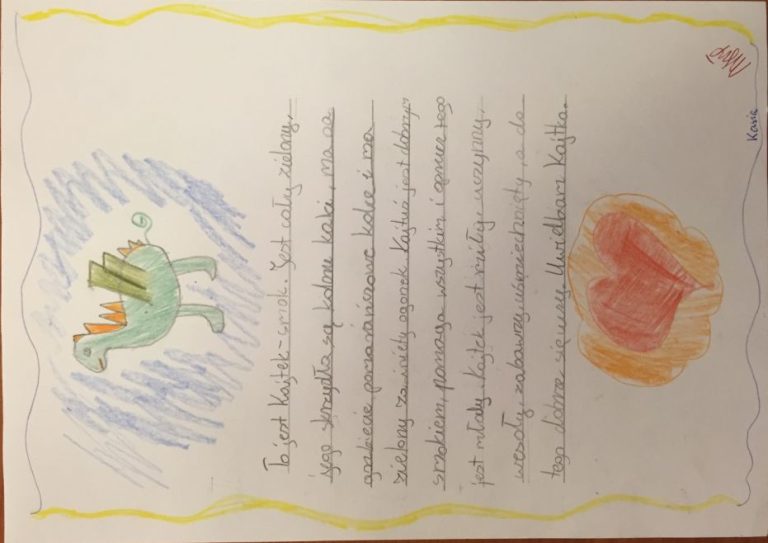 To jest Kajtek-smok. Jest cały zielony,
jego skrzydła są koloru kaki, ma na
gzbiecie pomarańczowe kolce i ma
zielony zawinięty ogonek. Kajtuś jest dobrym
smokiem, pomaga wszystkim i oprucz tego
jest Kajtek jest miły, uczynny,
wesoły, zabawny, uśmiechnięty, a do
tego dobrze się uczy. Uwielbiam Kajtka.
Kasia